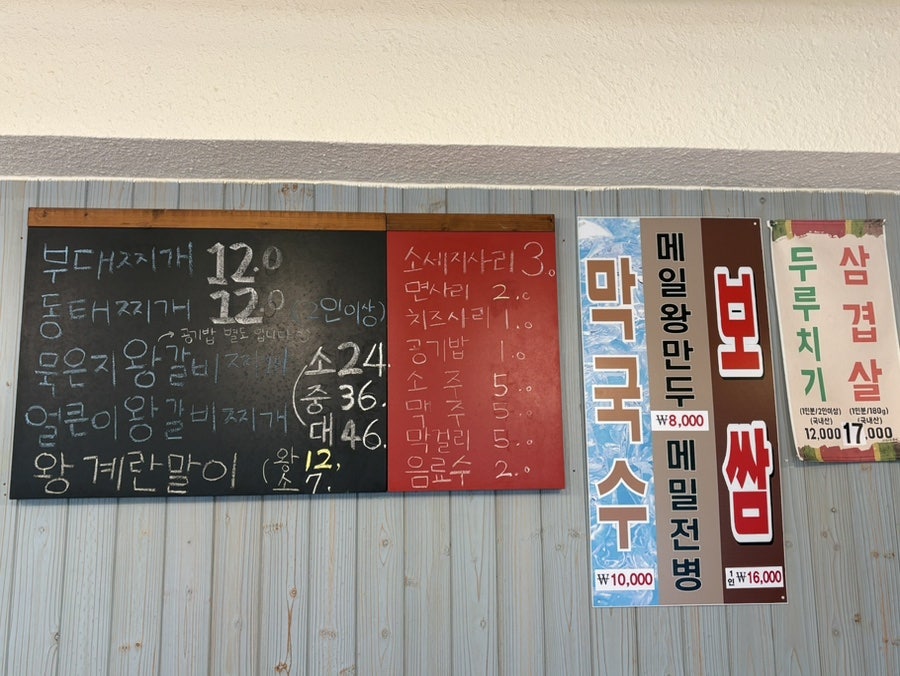 부대찌개 12.0
동태찌개 12.0 (2인이상)
공기밥 별도 입니다
묵은지왕갈비찌개 소 24.
얼큰이왕갈비찌개 중 36.
대 46.
왕계란말이 (왕 12,
소 7.
소세지사리 3.0
면사리 2.0
치즈사리 1.0
공기밥 1.0
소주 5.0
맥주 5.0
막걸리 5.0
음료수 2.0
막국수
₩10,000
메일왕만두
₩8,000
메밀전병
보쌈
1인 ₩16,000
두루치기
(1인분/2인이상)
(국내산)
12,000
삼겹살
(1인분/180g)
(국내산)
17,000